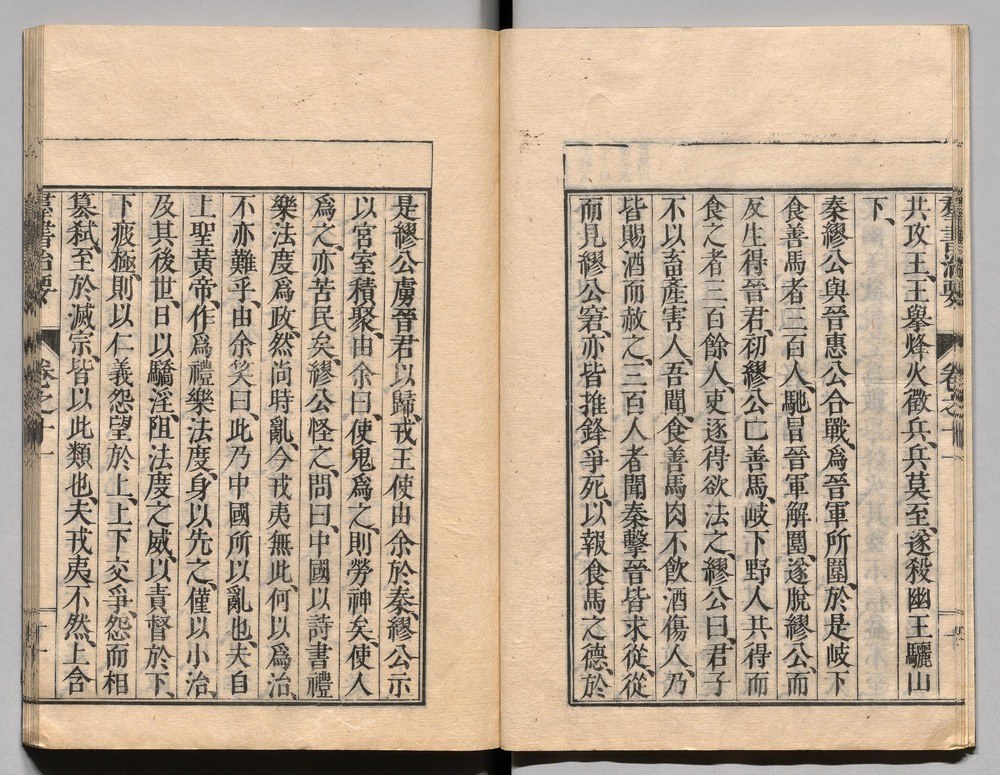 共攻王、王舉烽火徵兵、兵莫至、遂殺幽王驪山
下、
秦繆公與晉惠公合戰、爲晉軍所圍、於是岐下
食善馬者三百人、馳冒晉軍解圍、遂脫繆公、而
反生得晉君、初繆公亡善馬、岐下野人共得而
食之者三百餘人、吏逐得欲法之、繆公曰、君子
不以畜產害人、吾聞、食善馬肉不飲酒傷人、乃
皆賜酒而赦之、三百人者聞秦擊晉皆求從、從
而見繆公窘、亦皆推鋒爭死、以報食馬之德、於
是繆公虜晉君以歸、戎王使由余於秦、繆公示
以宮室積聚、由余曰、使鬼爲之、則勞神矣、使人
爲之、亦苦民矣、繆公怪之、問曰、中國以詩書禮
樂法度爲政、然尚時亂、今戎夷無此、何以爲治、
不亦難乎、由余笑曰、此乃中國所以亂也、夫自
上聖黃帝、作爲禮樂法度、身以先之、僅以小治、
及其後世、日以驕淫、阻法度之威、以責督於下、
下疲極、則以仁義怨望於上、上下交爭、怨而相
簒弒、至於滅宗、皆以此類也、夫戎夷不然、上含
羣書治要
卷之十一